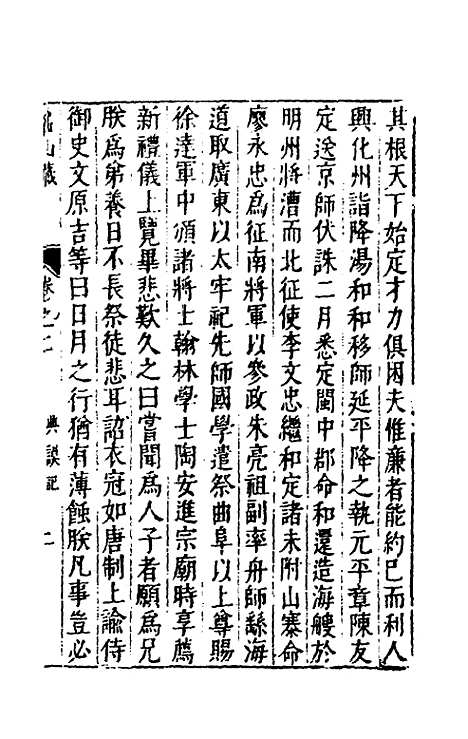 其根天下始定才力俱困夫惟廉者能約巳而利人
興化州詣降湯和和移師延平降之執元平章陳友
定送京師伏誅二月悉定閩中郡命和還造海艘於
明州將漕而北征使李文忠繼和定諸未附山寨命
廖永忠爲征南將軍以參政朱亮祖副率舟師繇海
道取廣東以太牢祀先師國學遣祭曲阜以上尊賜
徐達軍中頒諸將士翰林學士陶安進宗廟時享薦
新禮儀上覽畢悲歎久之曰嘗聞爲人子者願爲兄
朕爲弟養日不長祭徒悲耳詔衣冠如唐制上諭侍
御史文原吉等曰日月之行猶有薄蝕朕凡事豈必
名山藏 卷之二 典謨記 二